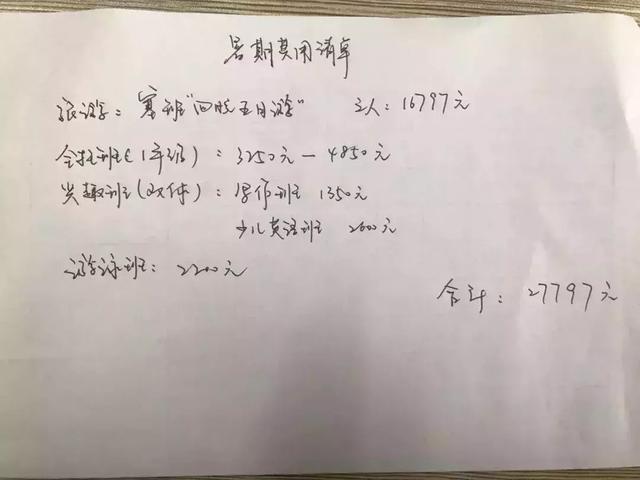 暑期费用清单
旅游: 塞班"四晚五日游" 三人: 16797元
全托班(1年级): 3250元—4850元
兴趣班(两付): 写作班 1350元
少儿英语班 2600元
游泳班: 2200元
合计: 27797元